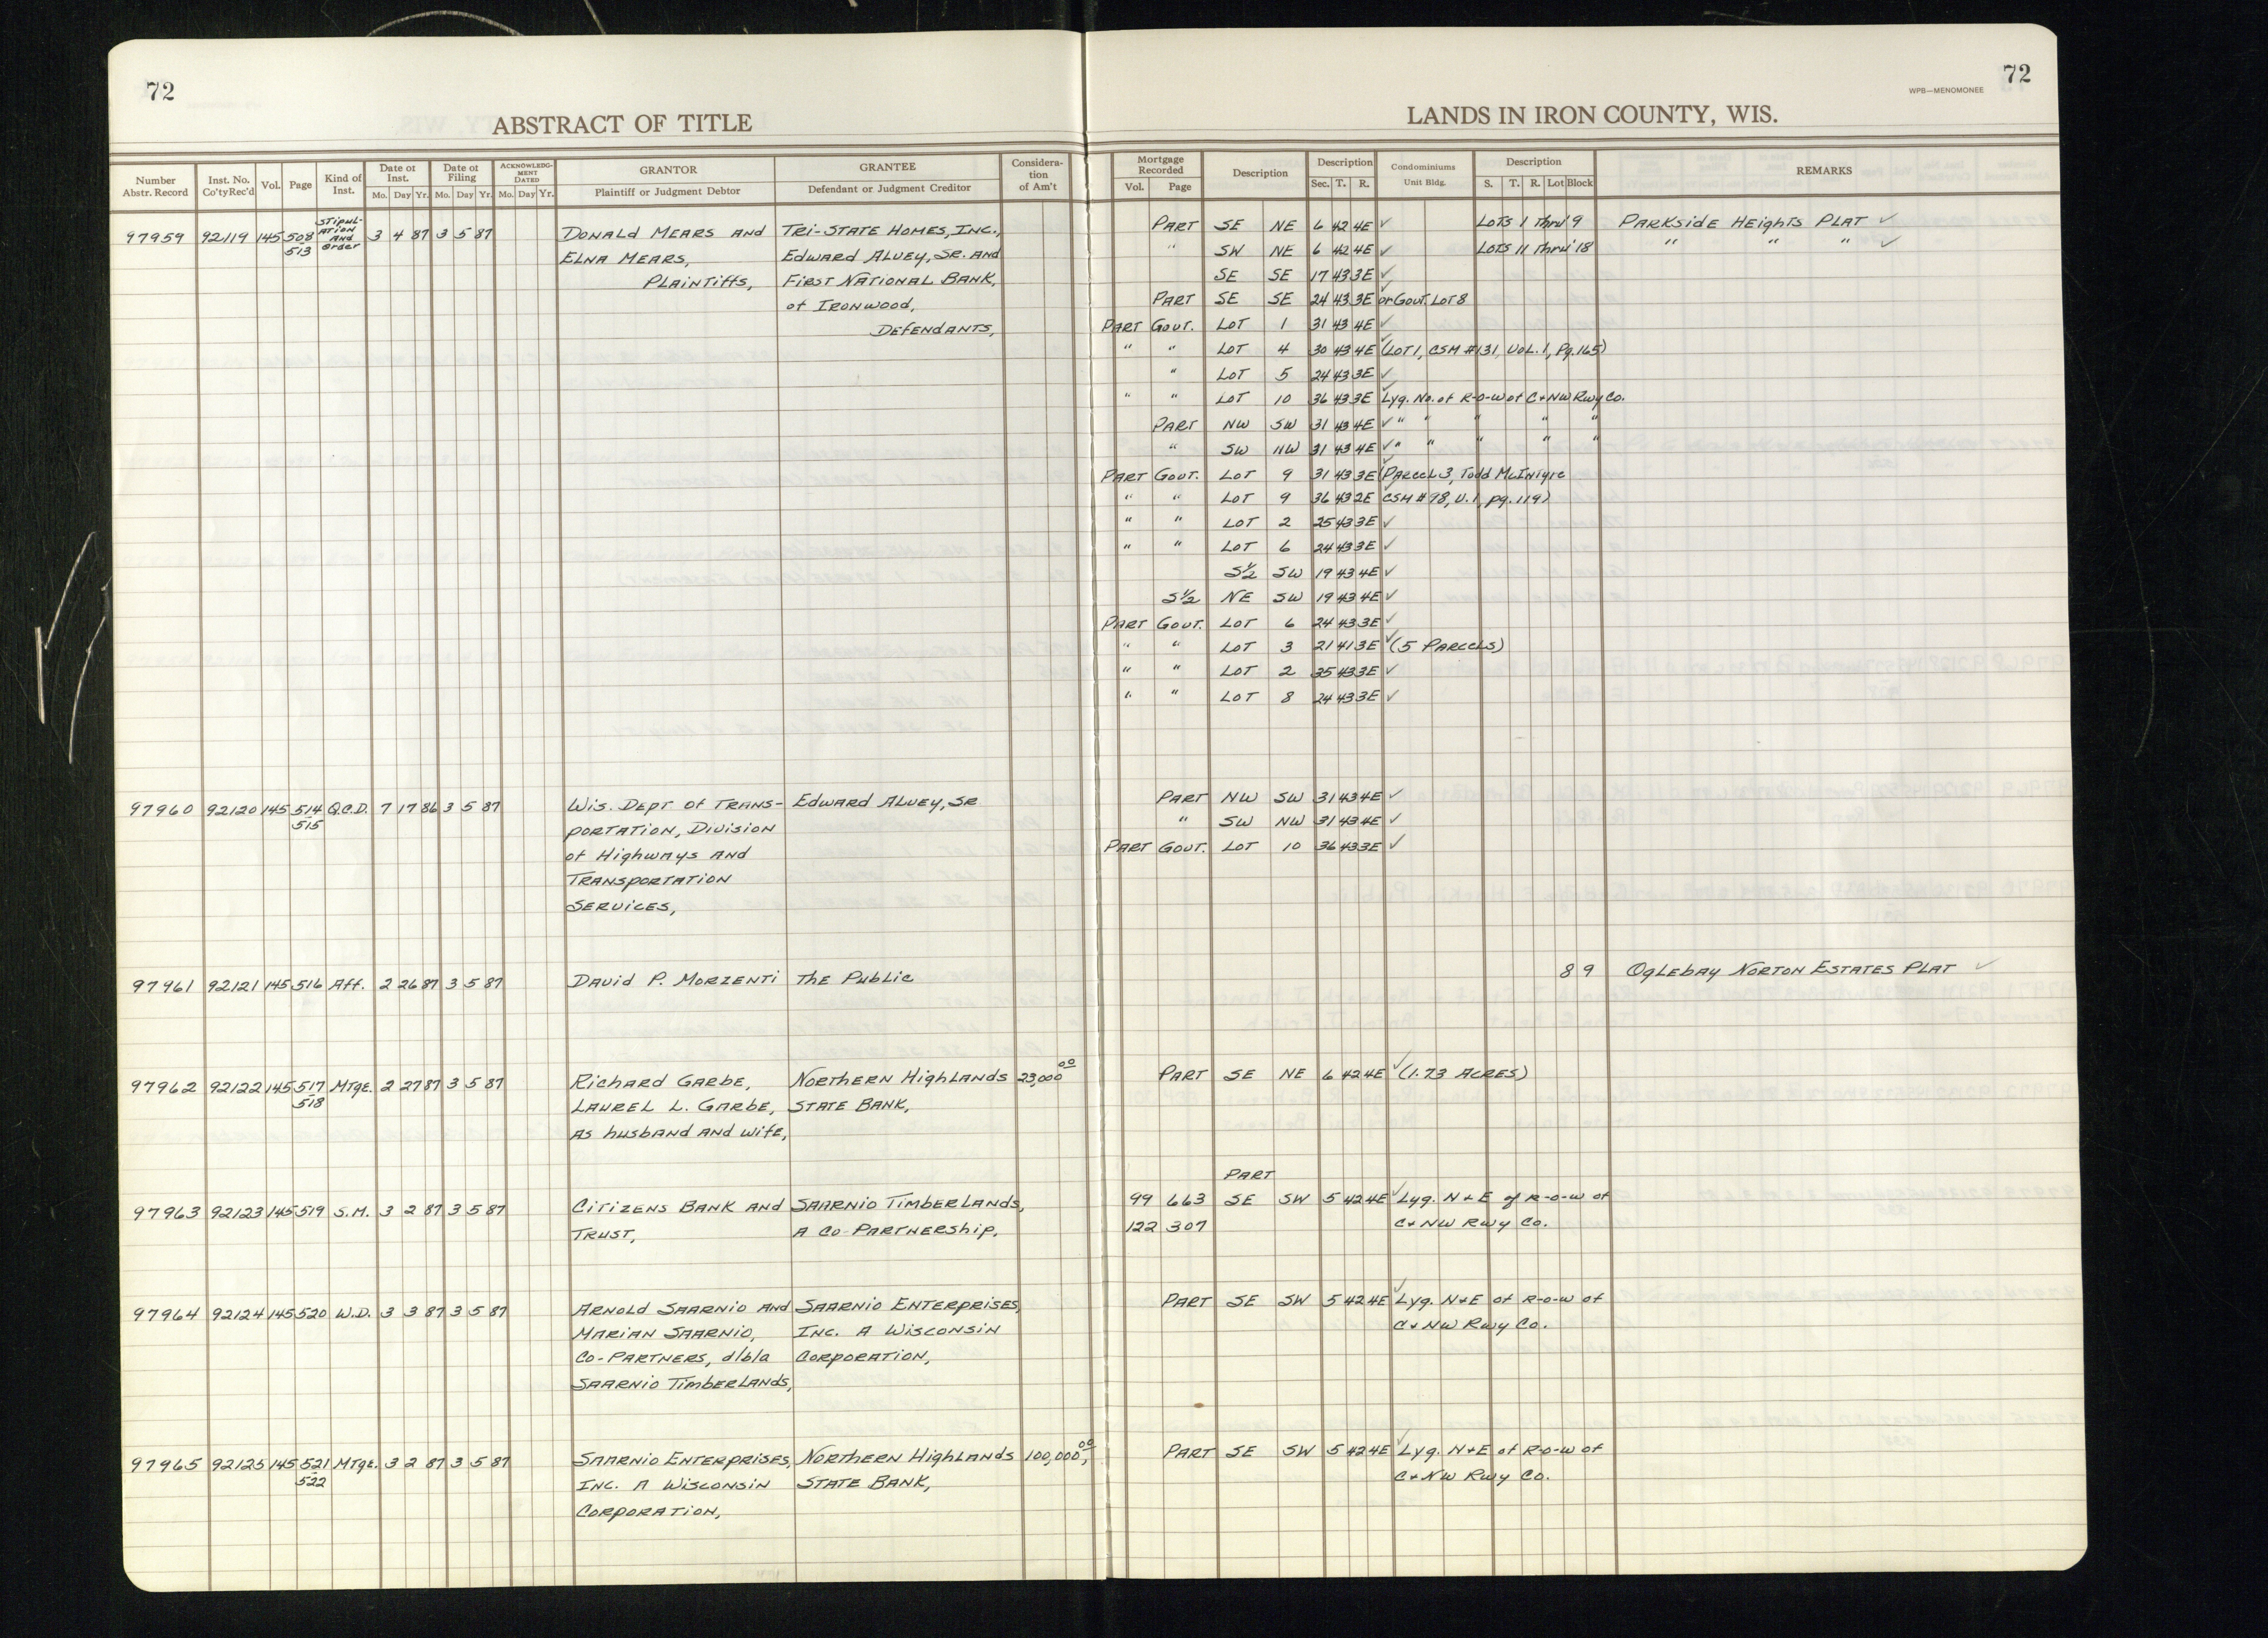 72
ABSTRACT OF TITLE
Number Abstr. Record | Inst. No. Co'tyRec'd | Vol. | Page | Kind of Inst. | Date of Inst. Mo. Day Yr. | Date of Filing Mo. Day Yr. | ACKNOWLEDGMENT DATED Mo. Day Yr. | GRANTOR Plaintiff or Judgment Debtor | GRANTEE Defendant or Judgment Creditor | Consideration of Am't
97959 92119 145 508 Stipulation and Order 3 4 87 3 5 87 Donald Mears and Tri-State Homes, Inc.,
513 Elna Mears, Edward Aluey, Sr. and
Plaintiffs, First National Bank,
of Ironwood,
Defendants,
97960 92120 145 514 Q.C.D. 7 17 86 3 5 87 Wis. Dept of Trans- Edward Aluey, Sr
515 portation, Division
of Highways and
Transportation
Services,
97961 92121 145 516 Aff. 2 26 87 3 5 87 David P. Morzenti The Public
97962 92122 145 517 Mtge. 2 27 87 3 5 87 Richard Garbe, Northern Highlands 23,000 00
518 Laurel L. Garbe, State Bank,
as husband and wife,
97963 92123 145 519 S.M. 3 2 87 3 5 87 Citizens Bank and Saarnio Timberlands,
Trust, A Co-Partnership,
97964 92124 145 520 W.D. 3 3 87 3 5 87 Arnold Saarnio and Saarnio Enterprises,
Marian Saarnio, Inc. A Wisconsin
Co-Partners, d/b/a Corporation,
Saarnio Timberlands,
97965 92125 145 521 Mtge. 3 2 87 3 5 87 Saarnio Enterprises, Northern Highlands 100,000, 00
522 Inc. A Wisconsin State Bank,
Corporation,
72
WPB—MENOMONEE
LANDS IN IRON COUNTY, WIS.
Mortgage Recorded Vol. Page | Description | Description Sec. T. R. | Condominiums Unit Bldg. | Description S. T. R. Lot Block | REMARKS
Part SE NE 6 42 4E ✓ Lots 1 thru 9 Parkside Heights Plat ✓
" SW NE 6 42 4E ✓ Lots 11 thru 18 " " " ✓
SE SE 17 43 3E ✓
Part SE SE 24 43 3E ✓ or Gout. Lot 8
Part Gout. Lot 1 31 43 4E ✓
" " Lot 4 30 43 4E ✓ (Lot 1, CSM #131, Vol. 1, Pg. 165)
" Lot 5 24 43 3E ✓
" " Lot 10 36 43 3E ✓ Lyg. No. of R-o-w of C+NW Rwy Co.
Part NW SW 31 43 4E ✓ " " " " "
" SW NW 31 43 4E ✓ " " " " "
Part Gout. Lot 9 31 43 3E ✓ (Parcel 3, Todd McIntyre
" " Lot 9 36 43 2E ✓ CSM #98, V. 1, pg. 119)
" " Lot 2 25 43 3E ✓
" " Lot 6 24 43 3E ✓
S½ SW 19 43 4E ✓
S½ NE SW 19 43 4E ✓
Part Gout. Lot 6 24 43 3E ✓
" " Lot 3 21 41 3E ✓ (5 Parcels)
" " Lot 2 35 43 3E ✓
" " Lot 8 24 43 3E ✓
Part NW SW 31 43 4E ✓
" SW NW 31 43 4E ✓
Part Gout. Lot 10 36 43 3E ✓
8 9 Oglebay Norton Estates Plat ✓
Part SE NE 6 42 4E ✓ (1.73 Acres)
Part
99 663 SE SW 5 42 4E ✓ Lyg. N+E of R-o-w of
122 307 C+NW Rwy Co.
Part SE SW 5 42 4E ✓ Lyg. N+E of R-o-w of
C+NW Rwy Co.
Part SE SW 5 42 4E ✓ Lyg. N+E of R-o-w of
C+NW Rwy Co.